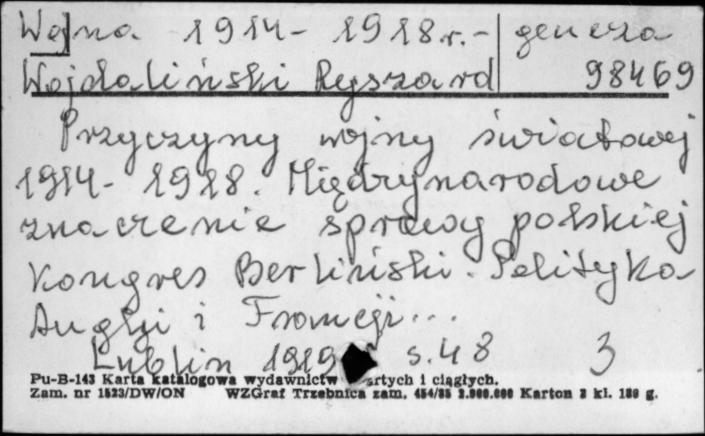 Wojna 1914- 1918r.- geneza
Wojdaliński Ryszard 98469
Przyczyny wojny światowej
1914- 1918. Międzynarodowe
znaczenie sprawy polskiej
Kongres Berliński. Polityka
Anglji i Francji...
Lublin 1919 s. 48 3
Pu-B-143 Karta katalogowa wydawnictw artych i ciągłych.
Zam. nr 1523/DW/ON WZGraf Trzebnica zam. 454/85 2.000.000 Karton 3 kl. 180 g.